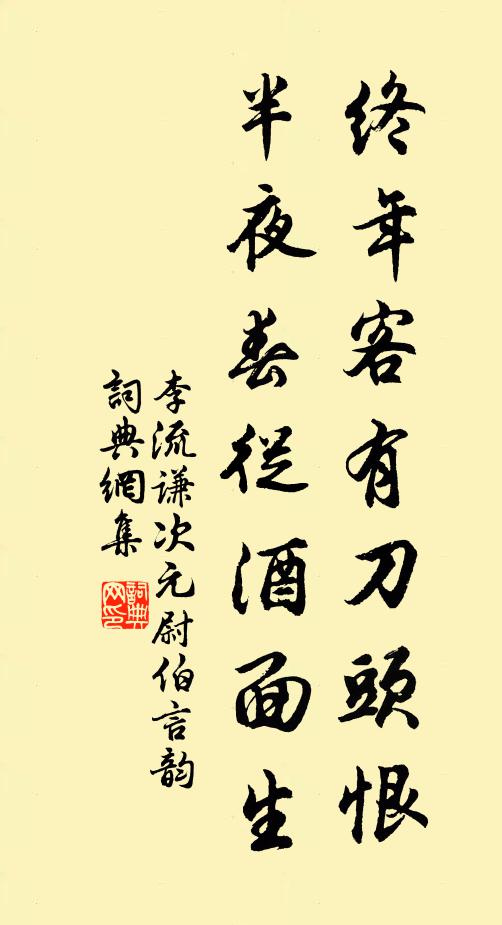 終年客有刀頭恨
半夜春從酒面生
李流謙次元尉伯言韵
詞典網集
詞典网印